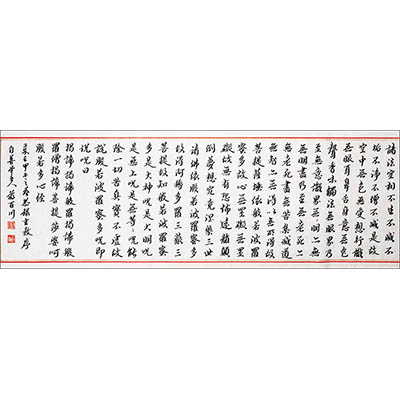 諸法空相不生不滅不
垢不淨不增不減是故
空中無色無受想行識
無眼耳鼻舌身意無色
聲香味觸法無眼界乃
至無意識界無無明亦
無無明盡乃至無老死亦
無老死盡無苦集滅道
無智亦無得以無所得故
菩提薩埵依般若波羅
蜜多故心無罣礙無罣
礙故無有恐怖遠離顛
倒夢想究竟涅槃三世
諸佛依般若波羅蜜多
故得阿耨多羅三藐三
菩提故知般若波羅蜜
多是大神咒是大明咒
是無上咒是無等等咒能
除一切苦真實不虛故
說般若波羅蜜多咒即
說咒曰
揭諦揭諦般羅揭諦般
羅僧揭諦菩提莎婆訶
般若多心經